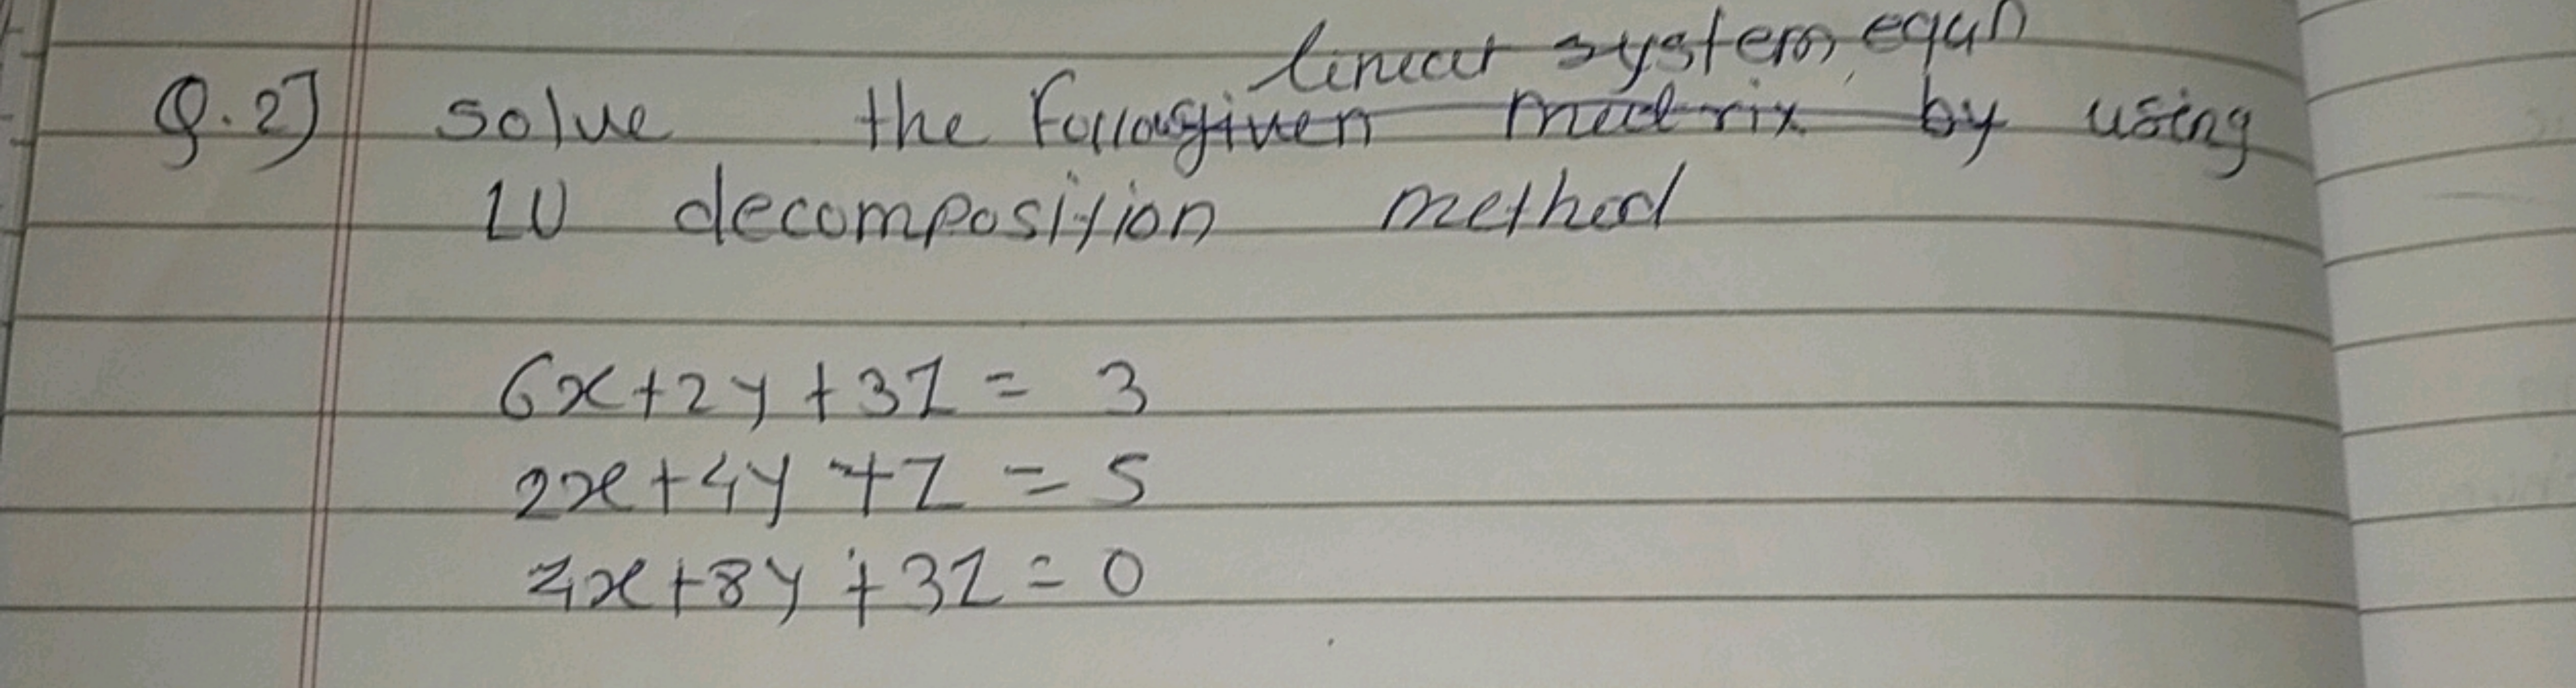 linear system equn
Q.2] solve the Follo given matrix by using
LU decomposition method
6x+2y+3z = 3
2x+4y+z = 5
4x+8y+3z = 0